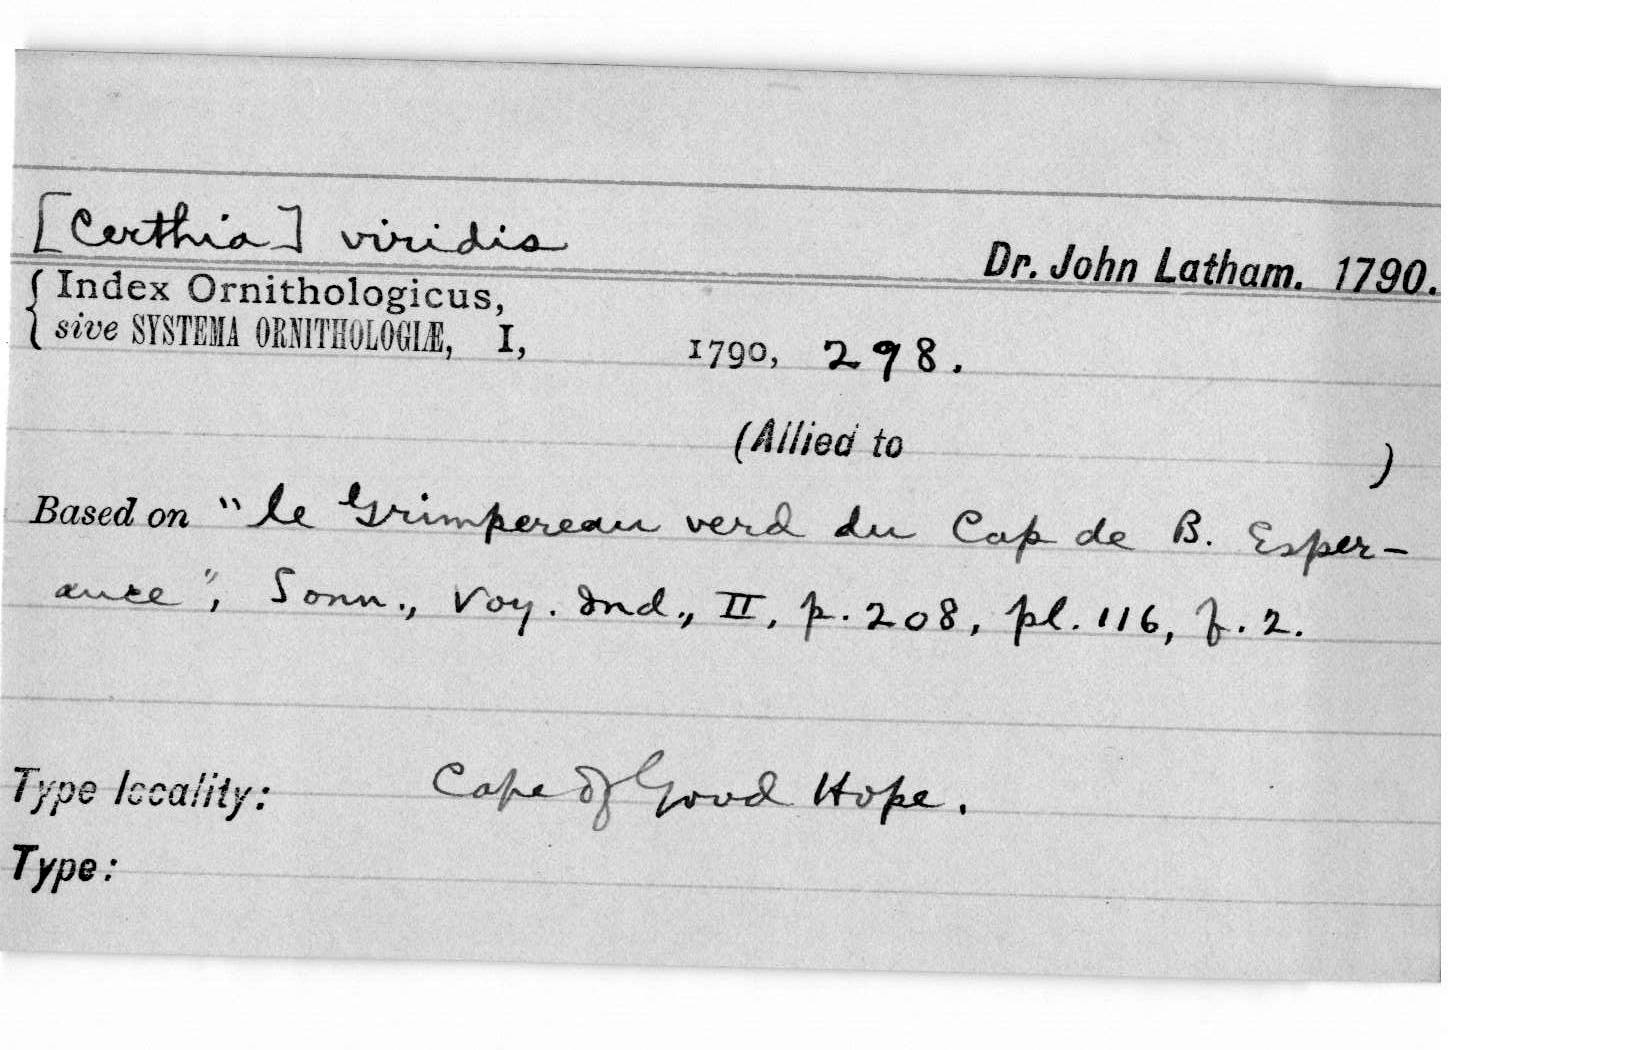 [Certhia] viridis
Dr. John Latham. 1790.
Index Ornithologicus,
sive SYSTEMA ORNITHOLOGIÆ, I, 1790, 298.
(Allied to )
Based on "le Grimpereau verd du Cap de B. Esper-
ance", Sonn., Voy. Ind., II, p. 208, pl. 116, f. 2.
Type locality: Cape of Good Hope.
Type: